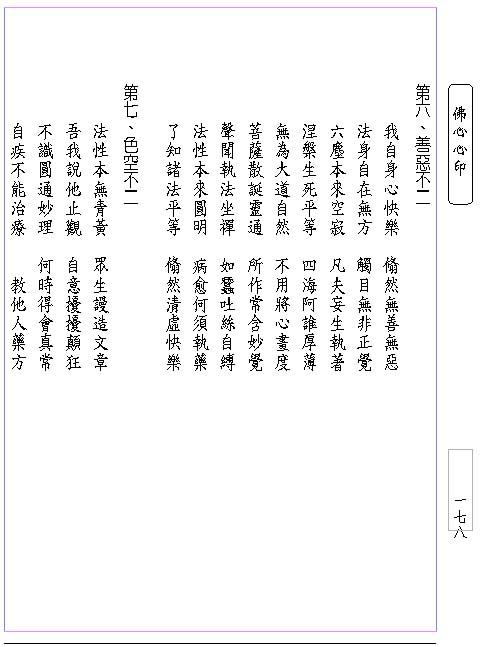 佛心心印
第六、善惡不二
我自身心快樂　翛然無善無惡
法身自在無方　觸目無非正覺
六塵本來空寂　凡夫妄生執著
涅槃生死平等　四海阿誰厚薄
無為大道自然　不用將心畫度
菩薩散誕靈通　所作常含妙覺
聲聞執法坐禪　如蠶吐絲自縛
法性本來圓明　病愈何須執藥
了知諸法平等　翛然清虛快樂
第七、色空不二
法性本無青黃　眾生謾造文章
吾我說他止觀　自意擾擾顛狂
不識圓通妙理　何時得會真常
自疾不能治療　教他人藥方
一七八